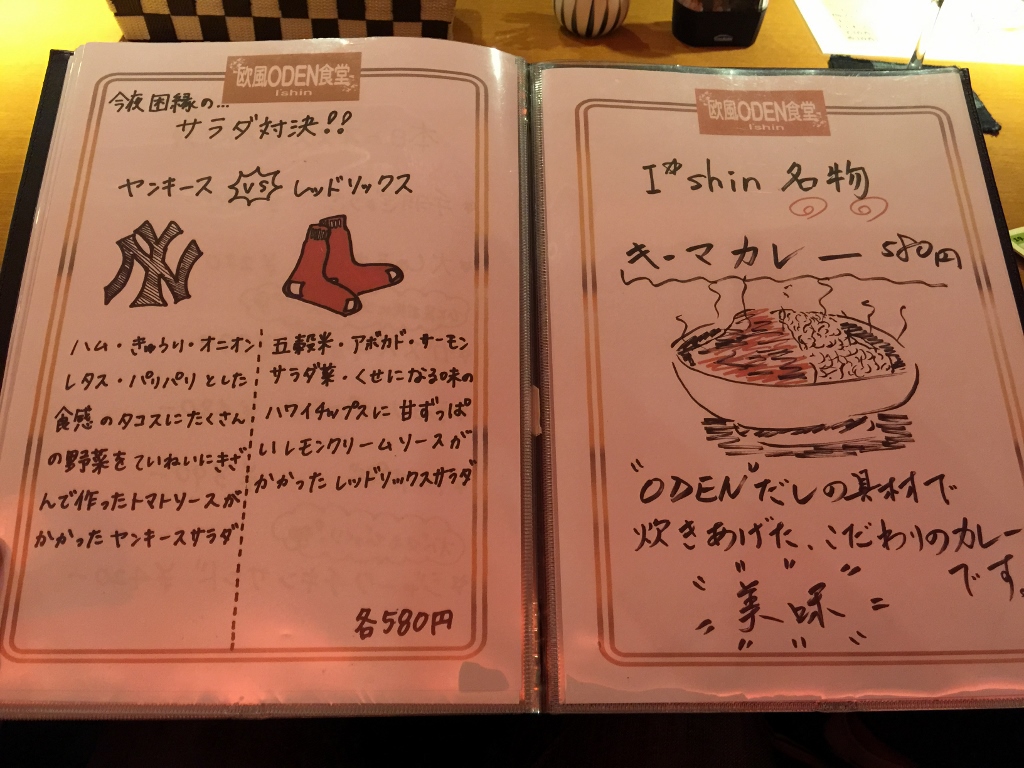 欧風ODEN食堂
I'shin
今夜因縁の…
サラダ対決!!
ヤンキース VS レッドソックス
NY
ハム・きゅうり・オニオン
レタス・パリパリとした
食感のタコスにたくさん
の野菜をていねいにきざ
んで作ったトマトソースが
かかったヤンキースサラダ
五穀米・アボカド・サーモン
サラダ菜・くせになる味の
ハワイチップスに甘ずっぱ
いレモンクリームソースが
かかったレッドソックスサラダ
各580円
欧風ODEN食堂
I'shin
I'shin 名物
キーマカレー 580円
"ODEN"だしの具材で
炊きあげた、こだわりのカレー
です。
美味